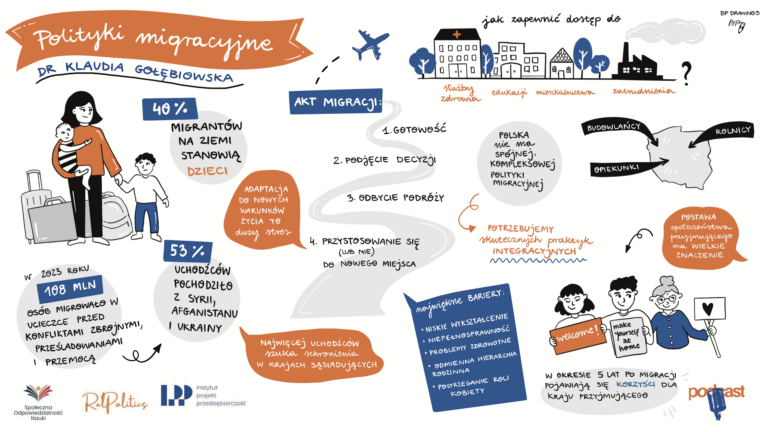 Polityki migracyjne
DR KLAUDIA GOŁĘBIOWSKA
40%
MIGRANTÓW
NA ZIEMI
STANOWIĄ
DZIECI
W 2023 ROKU
108 MLN
OSÓB MIGROWAŁO W
UCIECZCE PRZED
KONFLIKTAMI ZBROJNYMI,
PRZEŚLADOWANIAMI
I PRZEMOCĄ
53%
UCHODŹCÓW
POCHODZIŁO
Z SYRII,
AFGANISTANU
I UKRAINY
ADAPTACJA
DO NOWYCH
WARUNKÓW
ŻYCIA TO
duży stres
NAJWIĘCEJ UCHODŹCÓW
szuka schronienia
W KRAJACH SĄSIADUJĄCYCH
AKT MIGRACJI:
1. GOTOWOŚĆ
2. PODJĘCIE DECYZJI
3. ODBYCIE PODRÓŻY
4. PRZYSTOSOWANIE SIĘ
(LUB NIE)
DO NOWEGO MIEJSCA
jak zapewnić dostęp do
służby
zdrowia
edukacji
mieszkalnictwa
zatrudnienia
?
BP DRAWINGS
POLSKA
nie ma
SPÓJNEJ,
KOMPLEKSOWEJ
POLITYKI
MIGRACYJNEJ
POTRZEBUJEMY
skutecznych praktyk
INTEGRACYJNYCH
BUDOWLAŃCY
ROLNICY
OPIEKUNKI
POSTAWA
społeczeństwa
przyjmującego
ma WIELKIE
ZNACZENIE
największe BARIERY:
• NISKIE WYKSZTAŁCENIE
• NIEPEŁNOSPRAWNOŚĆ
• PROBLEMY ZDROWOTNE
• ODMIENNA HIERARCHIA
RODZINNA
• POSTRZEGANIE ROLI
KOBIETY
welcome!
make
yourself
at
home
W OKRESIE 5 LAT PO MIGRACJI
POJAWIAJĄ SIĘ KORZYŚCI DLA
KRAJU PRZYJMUJĄCEGO
podcast
Społeczna
Odpowiedzialność
Nauki
RelPolitics
IPP
instytut
projekt
przedsiębiorczość